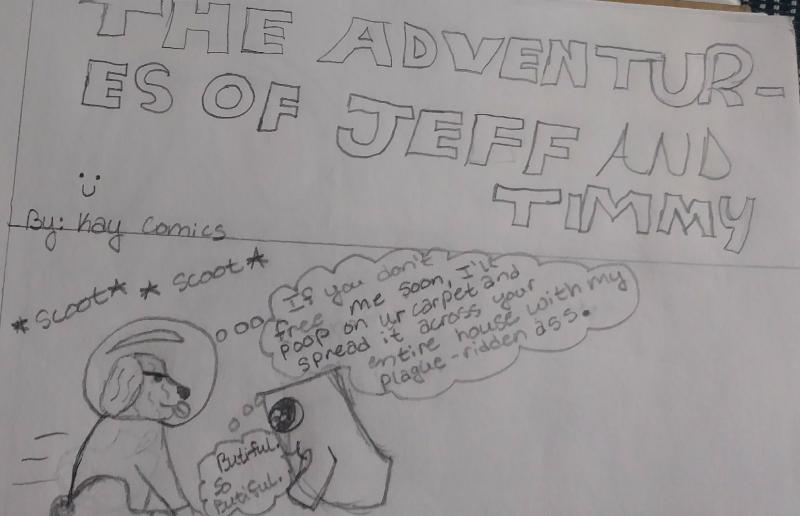 THE ADVENTUR-
ES OF JEFF AND
TIMMY
By: Kay Comics
*Scoot* *Scoot*
If you don't
free me soon, I'll
poop on ur carpet and
spread it across your
entire house with my
plague-ridden ass.
Butiful.
So
Butiful.